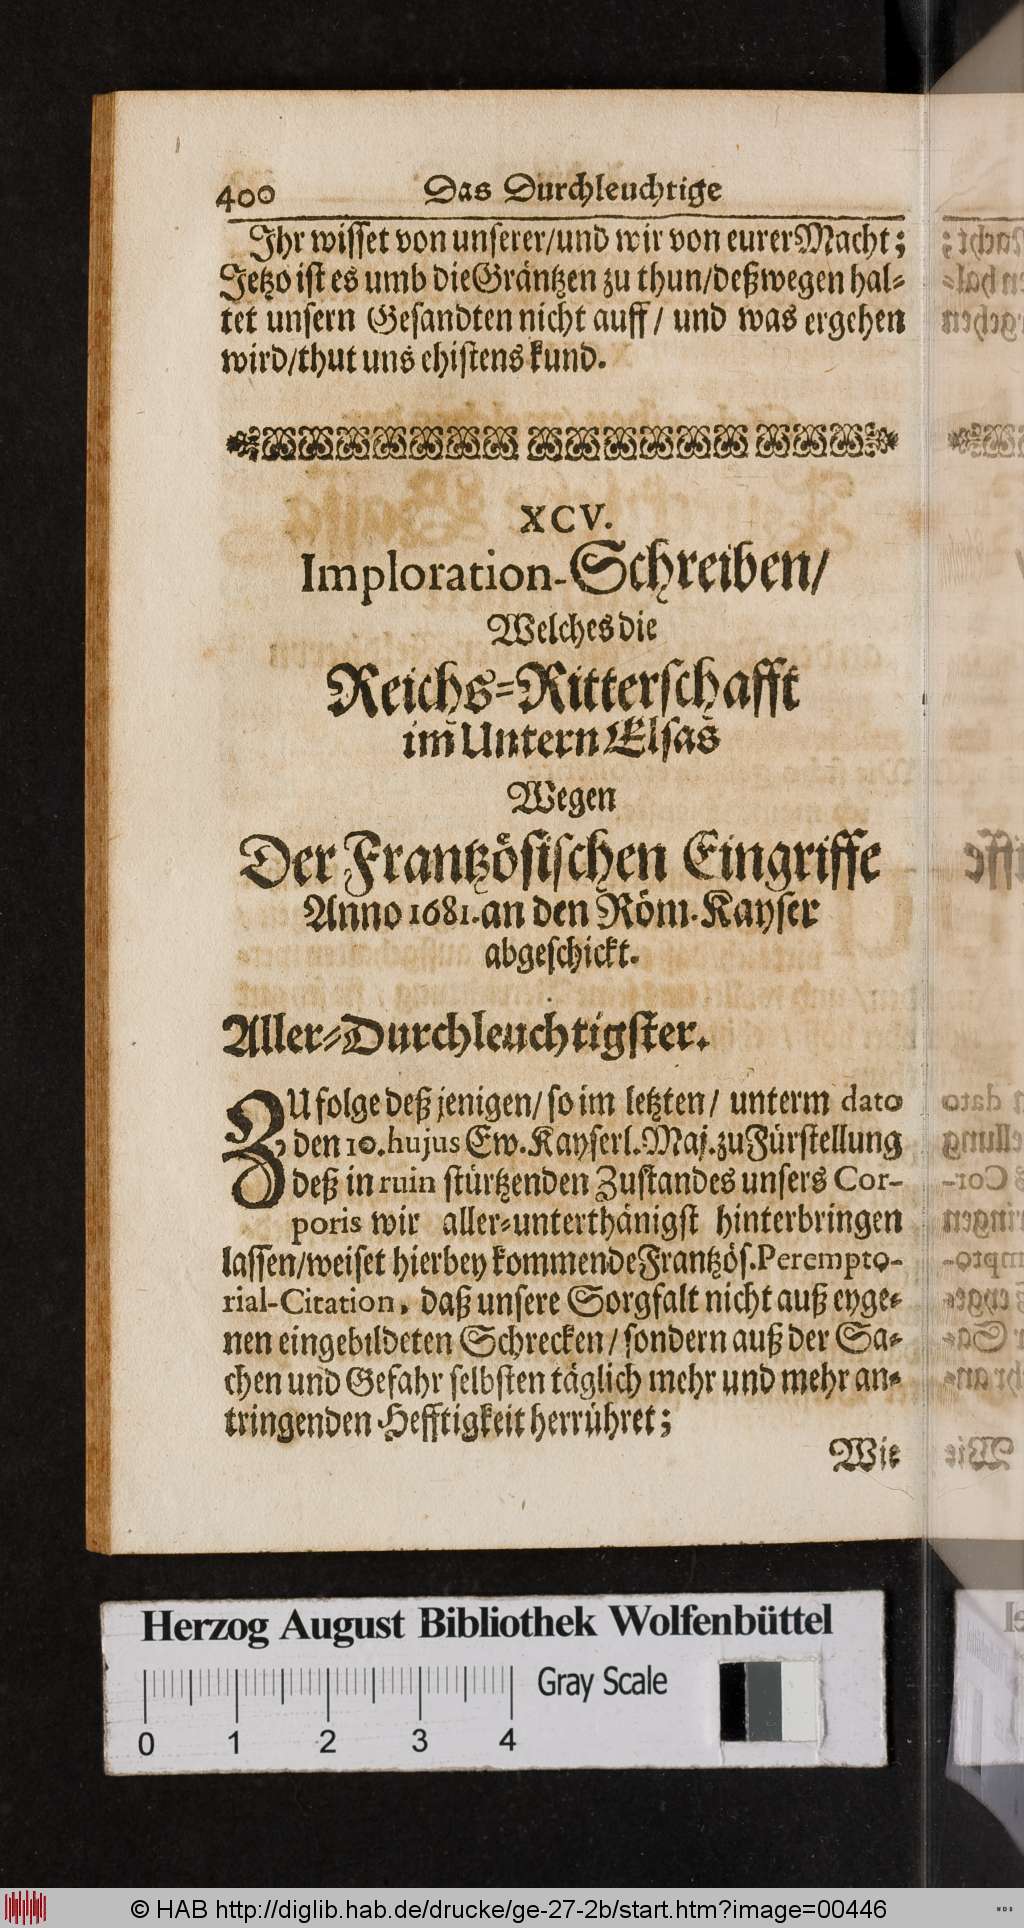 400 Das Durchleuchtige
Ihr wisset von unserer/und wir von eurer Macht;
Jetzo ist es umb die Gräntzen zu thun/deßwegen hal-
tet unsern Gesandten nicht auff/ und was ergehen
wird/thut uns ehistens kund.
XCV.
Imploration-Schreiben/
Welches die
Reichs-Ritterschafft
im Untern Elsas
Wegen
Der Frantzösischen Eingriffe
Anno 1681. an den Röm. Kayser
abgeschickt.
Aller-Durchleuchtigster.
ZU folge deß jenigen/ so im letzten/ unterm dato
den 10. hujus Ew. Kayserl. Maj. zu Fürstellung
deß in ruin stürtzenden Zustandes unsers Cor-
poris wir aller-unterthänigst hinterbringen
lassen/weiset hierbey kommende Frantzös. Perempto-
rial-Citation, daß unsere Sorgfalt nicht auß eyge-
nen eingebildeten Schrecken/ sondern auß der Sa-
chen und Gefahr selbsten täglich mehr und mehr an-
tringenden Hefftigkeit herrühret;
Wie
Herzog August Bibliothek Wolfenbüttel
Gray Scale
0 1 2 3 4
© HAB http://diglib.hab.de/drucke/ge-27-2b/start.htm?image=00446